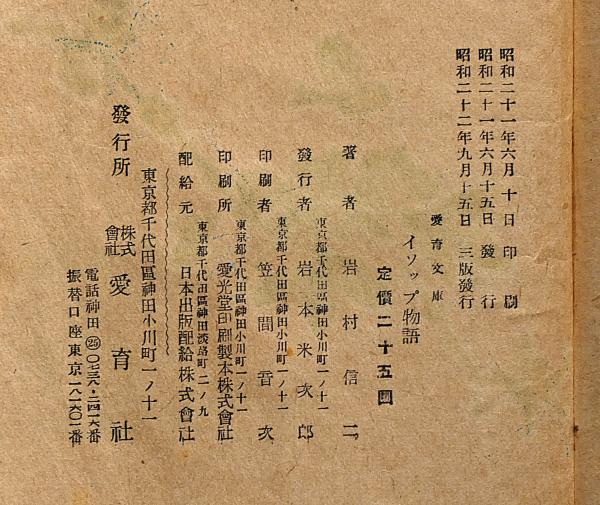 昭和二十一年六月十日印刷
昭和二十一年六月十五日發行
昭和二十二年九月十五日三版發行
愛育文庫
イソップ物語
定價二十五圓
著者岩村信二
東京都千代田區神田小川町一ノ十一
發行者岩本米次郎
東京都千代田區神田小川町一ノ十一
印刷者笠間音次
東京都千代田區神田小川町一ノ十一
印刷所愛光堂印刷製本株式會社
東京都千代田區神田淡路町二ノ九
配給元日本出版配給株式會社
東京都千代田區神田小川町一ノ十一
發行所株式會社愛育社
電話神田㉕〇七三八・二四一六番
振替口座東京一八一六〇一番